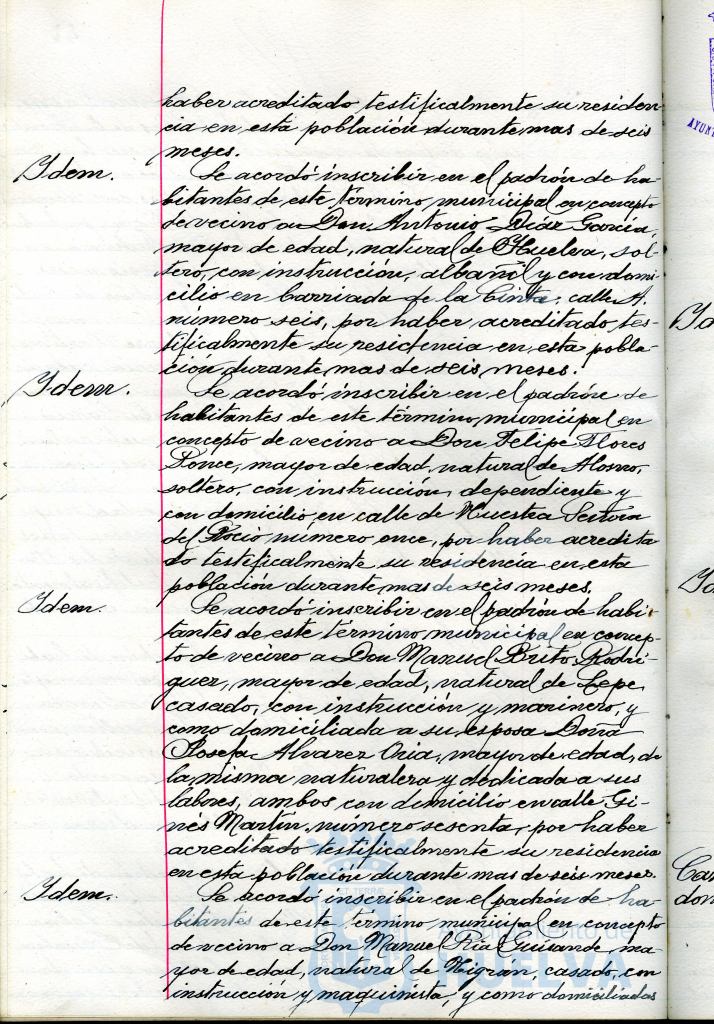 haber acreditado testificalmente su residen-
cia en esta población durante mas de seis
meses.
Idem.
Se acordó inscribir en el padrón de ha-
bitantes de este término municipal en concepto
de vecino a Don Antonio Díaz García,
mayor de edad, natural de Huelva, sol-
tero, con instrucción, albañil y con domi-
cilio en barriada de la Cinta, calle A.
número seis, por haber acreditado tes-
tificalmente su residencia en esta pobla-
ción durante mas de seis meses.
Idem.
Se acordó inscribir en el padrón de
habitantes de este término municipal en
concepto de vecino a Don Felipe Flores
Ponce, mayor de edad, natural de Alosno,
soltero, con instrucción, dependiente y
con domicilio en calle de Nuestra Señora
del Rocio número once, por haber acredita
do testificalmente su residencia en esta
población durante mas de seis meses.
Idem.
Se acordó inscribir en el padrón de habi-
tantes de este término municipal en concep-
to de vecino a Don Manuel Brito Rodrí-
guez, mayor de edad, natural de Lepe,
casado, con instrucción y marinero, y
como domiciliada a su esposa Doña
Josefa Alvarez Oria, mayor de edad, de
la misma naturaleza y dedicada a sus
labores, ambos con domicilio en calle Gi-
nés Martín, número sesenta, por haber
acreditado testificalmente su residencia
en esta población durante mas de seis meses.
Idem.
Se acordó inscribir en el padrón de ha-
bitantes de este término municipal en concepto
de vecino a Don Manuel Rial ma-
yor de edad, natural de Nigrán, casado, con
instrucción y maquinista, y como domiciliadas
HUELVA